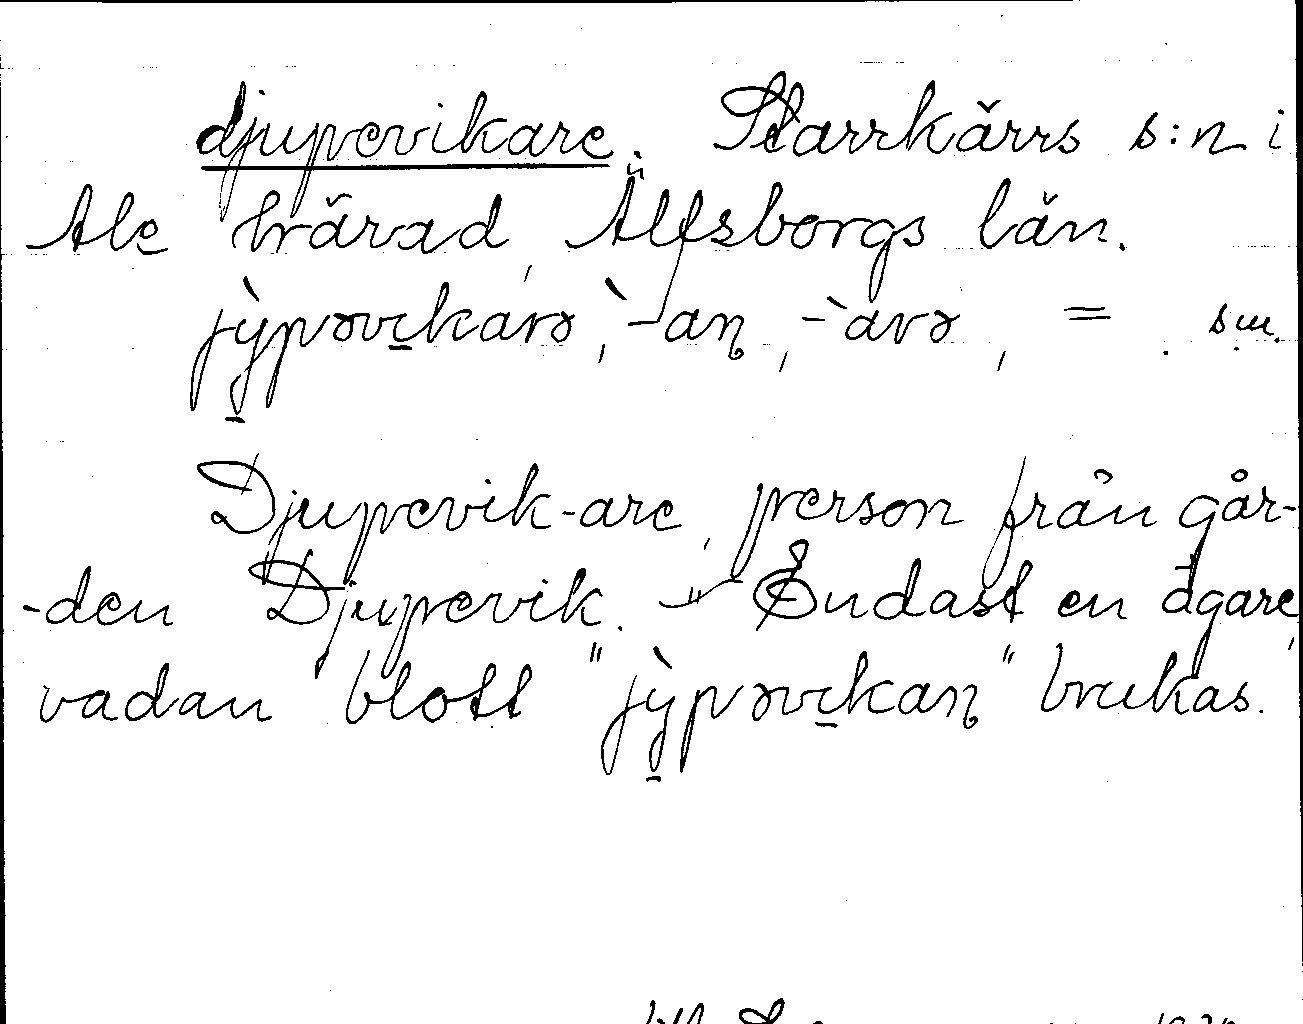 djupevikare. Starrkärrs s:n i
Ale härad, Älfsborgs län.
jỳ̠pəvi̠karə, -̀aɳ, -̀arə, = . sm.
Djupevik-are, person från går-
-den Djupevik. —"— Endast en ägare,
vadan blott "jỳ̠pəvi̠kaɳ" brukas.